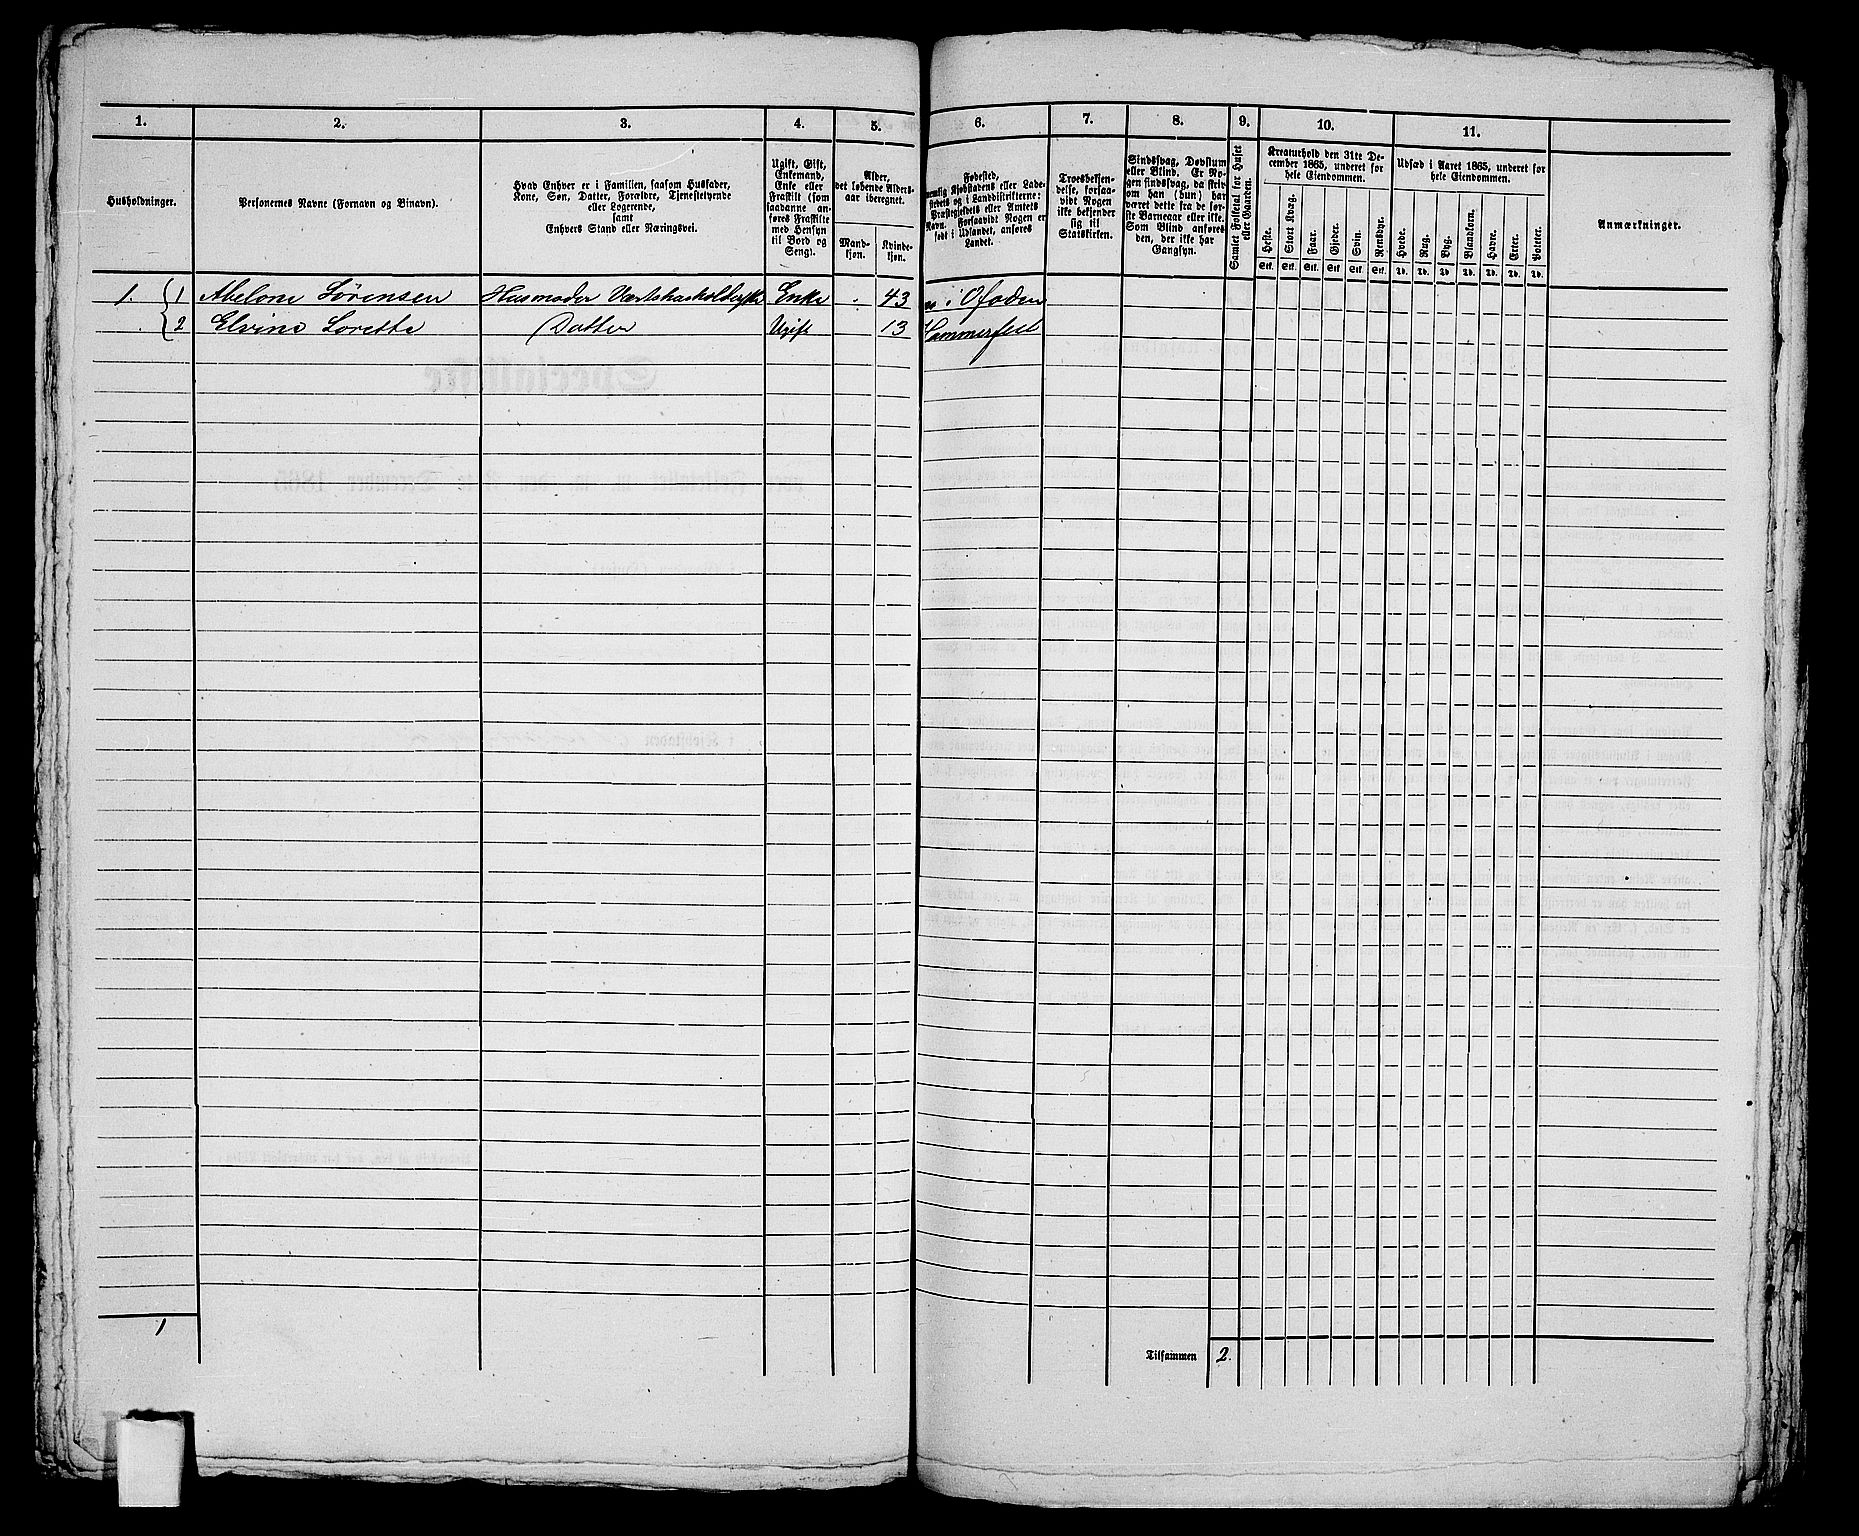 1. 2. 3. 4. 5. 6. 7. 8. 9. 10. 11.
Husholdninger.
Personernes Navne (Fornavn og Binavn).
Hvad Enhver er i Familien, saasom Husfader,
Kone, Søn, Datter, Forældre, Tjenestetyende
eller Logerende,
samt
Enhvers Stand eller Næringsvei.
Ugift, Gift,
Enkemand,
Enke eller
Fraskilt (som
saadanne an-
føres Fraskilte
med Hensyn
til Bord og
Seng).
Alder,
det løbende Alders-
aar iberegnet.
Mand-
kjøn.
Kvinde-
kjøn.
Fødested,
nemlig Kjøbstadens eller Lade-
stedets og i Landdistrikterne:
Præstegjeldets eller Amtets
Navn. Forsaavidt Nogen er
født i Udlandet, anføres
Landet.
Troesbekjen-
delse, forsaa-
vidt Nogen
ikke bekjender
sig til
Statskirken.
Sindssvag, Døvstum
eller Blind. Er No-
gen sindssvag, da skriv
om han (hun) har
været dette fra de før-
ste Barneaar eller ikke.
Som Blind anføres
den, der ikke har
Gangsyn.
Samlet Folketal for Huset
eller Gaarden.
Kreaturhold den 31te De-
cember 1865, underet for
hele Eiendommen.
Heste. Stort Kvæg. Faar. Gjeder. Svin. Rensdyr.
Stk. Stk. Stk. Stk. Stk. Stk.
Udsæd i Aaret 1865, underet for
hele Eiendommen.
Hvede. Rug. Byg. Blandkorn. Havre. Erter. Poteter.
Td. Td. Td. Td. Td. Td. Td.
Anmærkninger.
1. 1 Abelone Sørensen Husmoder Enke 43 i Ofoden
2 Elvine Lorette Datter Ugift 13 Hammerfest
1
Tilsammen 2.